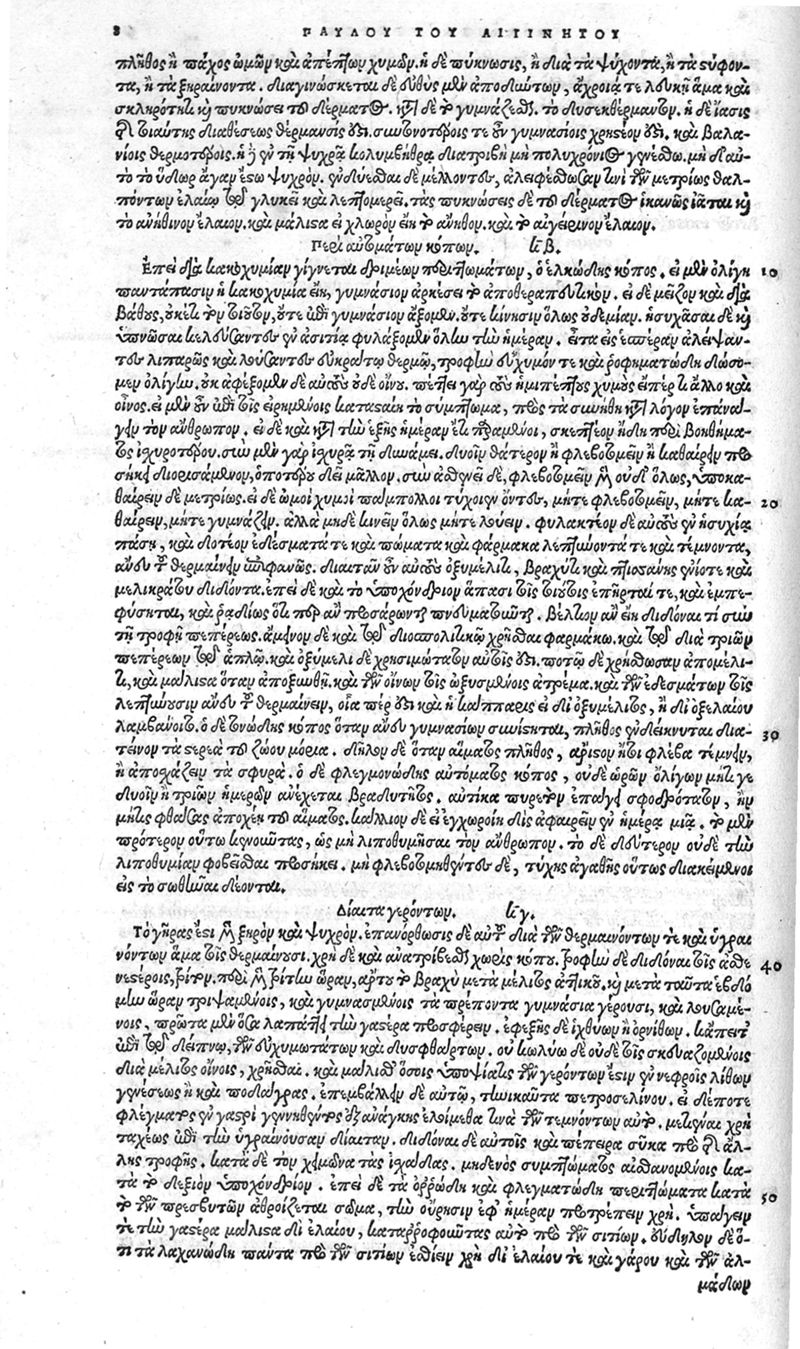 8 ΠΑΥΛΟΥ ΤΟΥ ΑΙΓΙΝΗΤΟΥ
πλῆθος ἢ πάχος ὠμῶν καὶ ἀπέπτων χυμῶν. ἡ δὲ πύκνωσις, ἢ διὰ τὰ ψύχοντα, ἢ τὰ τύφον-
τα, ἢ τὰ ξηραίνοντα. διαγινώσκεται δὲ εὐθὺς μὲν ἀποδυόντων, ἀχροίᾳ τε λευκῇ ἅμα καὶ
σκληρότητι καὶ πυκνώσει τοῦ δέρματος. κατὰ δὲ τὸ γυμνάζεσθαι. τὸ δυσεκθέρμαντον. ἡ δὲ ἴασις
τῆς τοιαύτης διαθέσεως θέρμανσίς ἐστι. συντονωτέροις τε οὖν γυμνασίοις χρηστέον ἐστὶ. καὶ βαλα-
νείοις θερμοτέροις. ἡ δὲ ἐν τῇ ψυχρᾷ κολυμβήθρᾳ διατριβὴ μὴ πολυχρόνιος γινέσθω. μὴ δ' αὐ-
τὸ τὸ ὕδωρ ἄγαν ἔστω ψυχρὸν. ἐνδύεσθαι δὲ μέλλοντες, ἀλειφέσθωσάν τινι τῶν μετρίως θαλ-
πόντων ἐλαίῳ τῷ γλυκεῖ καὶ λεπτομερεῖ. τὰς πυκνώσεις δὲ τοῦ δέρματος ἱκανῶς ἰᾶται καὶ
τὸ ἀνήθινον ἔλαιον. καὶ μάλιστα εἰ χλωρὸν εἴη τὸ ἄνηθον. καὶ τὸ αἰγείρινον ἔλαιον.
Περὶ αὐτομάτων κόπων. κε. β.
Ἐπεὶ διὰ κακοχυμίαν γίγνεται δριμέων περιττωμάτων, ὁ ἑλκώδης κόπος. εἰ μὲν ὀλίγη 10
παντάπασιν ἡ κακοχυμία εἴη, γυμνάσιον ἀρκέσει τὸ ἀποθεραπευτικόν. εἰ δὲ μείζον καὶ διὰ
βάθους, οὐκέτι τὸν τοιοῦτον, οὔτε ἐπὶ γυμνάσιον ἄξομεν. οὔτε κίνησιν ὅλως οὐδεμίαν. ἡσυχᾶσαι δὲ καὶ
ὑπνῶσαι κελεύσαντες ἐν ἀσιτίᾳ φυλάξομεν ὅλην τὴν ἡμέραν. εἶτα εἰς ἑσπέραν ἀλείψαν-
τες λιπαρῶς καὶ λούσαντες εὐκράτῳ θερμῷ, τροφὴν εὔχυμόν τε καὶ ῥοφηματώδη δώσο-
μεν ὀλίγην. οὐκ ἀφέξομεν δὲ αὐτοὺς οὐδὲ οἴνου. πέττει γὰρ τοὺς ἡμιπέπτους χυμοὺς εἴπερ τι ἄλλο καὶ
οἶνος. εἰ μὲν οὖν ἐπὶ τοῖς εἰρημένοις κατασταίη τὸ σύμπτωμα, πρὸς τὰ συνήθη κατὰ λόγον ἐπανάγ-
ειν τὸν ἄνθρωπον. εἰ δὲ καὶ κατὰ τὴν ἑξῆς ἡμέραν ἔτι παραμένοι, σκεπτέον ἤδη περὶ βοηθήμα-
τος ἰσχυροτέρου. σὺν μὲν γὰρ ἰσχυρᾷ τῇ δυνάμει. δυοῖν θάτερον ἢ φλεβοτομεῖν ἢ καθαίρειν προ-
σήκει διορισάμενον, ὁποτέρου δεῖ μᾶλλον. σὺν ἀσθενεῖ δὲ, φλεβοτομεῖν μὲν οὐδ' ὅλως, ὑποκα-
θαίρειν δὲ μετρίως. εἰ δὲ ὠμοὶ χυμοὶ πάμπολλοι τύχοιεν ὄντες, μήτε φλεβοτομεῖν, μήτε κα- 20
θαίρειν, μήτε γυμνάζειν. ἀλλὰ μηδὲ κινεῖν ὅλως μήτε λούειν. φυλακτέον δὲ αὐτοὺς ἐν ἡσυχίᾳ
πάσῃ, καὶ δοτέον ἐδέσματά τε καὶ πώματα καὶ φάρμακα λεπτύνοντά τε καὶ τέμνοντα,
ἄνευ τοῦ θερμαίνειν ἐπιφανῶς. διαιτᾶν οὖν αὐτοὺς ὀξυμέλιτι, βραχύ τι καὶ πτισάνης ἐνίοτε καὶ
μελικράτου διδόντα. ἐπεὶ δὲ καὶ τὸ ὑποχόνδριον ἅπασι τοῖς τοιούτοις ἐπῆρταί τε, καὶ ἐμπε-
φύσηται, καὶ ῥᾳδίως ὅτι περ ἂν προσάρωνται πνευματοῦται. βέλτιον ἂν εἴη διδόναι τι σὺν
τῇ τροφῇ πεπέρεως. ἄμεινον δὲ καὶ τῷ διοσπολιτικῷ χρῆσθαι φαρμάκῳ. καὶ τῷ διὰ τριῶν
πεπέρεων τῷ ἁπλῷ. καὶ ὀξύμελι δὲ χρησιμώτατον αὐτοῖς ἐστι. ποτῷ δὲ χρήσθωσαν ἀπομέλι-
τι, καὶ μάλιστα ὅταν ἀποξυνθῇ. καὶ τῶν οἴνων τοῖς ὠξυσμένοις ἀτρέμα. καὶ τῶν ἐδεσμάτων τοῖς
λεπτύνουσιν ἄνευ τοῦ θερμαίνειν, οἷα πέρ ἐστι καὶ ἡ κάππαρις εἰ δι' ὀξυμέλιτος, ἢ δι' ὀξελαίου
λαμβάνοιτο. ὁ δὲ τονώδης κόπος ὅταν ἄνευ γυμνασίων συνίστηται, πλῆθος ἐνδείκνυται δια- 30
τεῖνον τὰ στερεὰ τοῦ ζώου μόρια. δῆλον δὲ ὅταν αἵματος πλῆθος, ἄριστον ἤτοι φλέβα τέμνειν,
ἢ ἀποσχάζειν τὰ σφυρά. ὁ δὲ φλεγμονώδης αὐτόματος κόπος, οὐδὲ ὡρῶν ὀλίγων μήτι γε
δυοῖν ἢ τριῶν ἡμερῶν ἀνέχεται βραδυτῆτος. αὐτίκα πυρετὸν ἐπάγει σφοδρότατον, ἢν
μήτις φθάσας ἀποχέῃ τοῦ αἵματος. κάλλιον δὲ εἰ ἐγχωροίη δὶς ἀφαιρεῖν ἐν ἡμέρᾳ μιᾷ. τὸ μὲν
πρότερον οὕτω κενοῦντας, ὡς μὴ λιποθυμῆσαι τὸν ἄνθρωπον. τὸ δὲ δεύτερον οὐδὲ τὴν
λιποθυμίαν φοβεῖσθαι προσήκει. μὴ φλεβοτομηθέντες δὲ, τύχης ἀγαθῆς οὕτως διακείμενοι
εἰς τὸ σωθῆναι δέονται.
Δίαιτα γερόντων. κε. γ.
Τὸ γῆράς ἐστι μὲν ξηρὸν καὶ ψυχρὸν. ἐπανόρθωσις δὲ αὐτοῦ διὰ τῶν θερμαινόντων τε καὶ ὑγραι
νόντων ἅμα τοῖς θερμαίνουσι. χρὴ δὲ καὶ ἀνατρίβεσθαι χωρὶς κόπου. τροφὴν δὲ διδόναι τοῖς ἀσθε 40
νεστέροις, τρίτον. περὶ μὲν τρίτην ὥραν, ἄρτου τὸ βραχὺ μετὰ μέλιτος ἀττικοῦ, καὶ μετὰ ταῦτα ἑβδό
μην ὥραν τριψαμένοις, καὶ γυμνασαμένοις τὰ πρέποντα γυμνάσια γέρουσι, καὶ λουσαμέ-
νοις, πρῶτα μὲν ὅσα λαπάττει τὴν γαστέρα προσφέρειν. ἐφεξῆς δὲ ἰχθύων ἢ ὀρνίθων. κἄπειτ'
ἐπὶ τῷ δείπνῳ, τῶν εὐχυμοτάτων καὶ δυσφθάρτων. οὐ κωλύω δὲ οὐδὲ τοῖς σκευαζομένοις
διὰ μέλιτος οἴνοις, χρῆσθαι. καὶ μάλισθ' ὅσοις ὑποψία τις τῶν γερόντων ἐστὶν ἐν νεφροῖς λίθων
γενέσεως ἢ καὶ ποδάγρας. ἐπεμβάλλειν δὲ αὐτῷ, τηνικαῦτα πετροσελίνου. εἰ δέποτε
φλέγματος ἐν γαστρὶ γεννηθέντος ἐξ ἀνάγκης ἑλοίμεθα τινὰ τῶν τεμνόντων αὐτό. μετιέναι χρὴ
ταχέως ἐπὶ τὴν ὑγραίνουσαν δίαιταν. διδόναι δὲ αὐτοῖς καὶ πέπειρα σῦκα πρὸ τῆς ἄλ-
λης τροφῆς. κατὰ δὲ τὸν χειμῶνα τὰς ἰσχάδας. μηδενὸς συμπτώματος αἰσθανομένοις κα-
τὰ τὸ δεξιὸν ὑποχόνδριον. ἐπεὶ δὲ τὰ ὀρρώδη καὶ φλεγματώδη περιττώματα κατὰ 50
τὸ τῶν πρεσβυτῶν ἀθροίζεται σῶμα, τὴν οὔρησιν ἐφ' ἡμέραν προτρέπειν χρὴ. ὑπάγειν
τε τὴν γαστέρα μάλιστα δι' ἐλαίου, καταρροφοῦντας αὐτὸ πρὸ τῶν σιτίων. εὔδηλον δὲ ὅ-
τι τὰ λαχανώδη πάντα πρὸ τῶν σιτίων ἐσθίειν χρὴ δι' ἐλαίου τε καὶ γάρου καὶ τῶν ἁλ-
μάδων